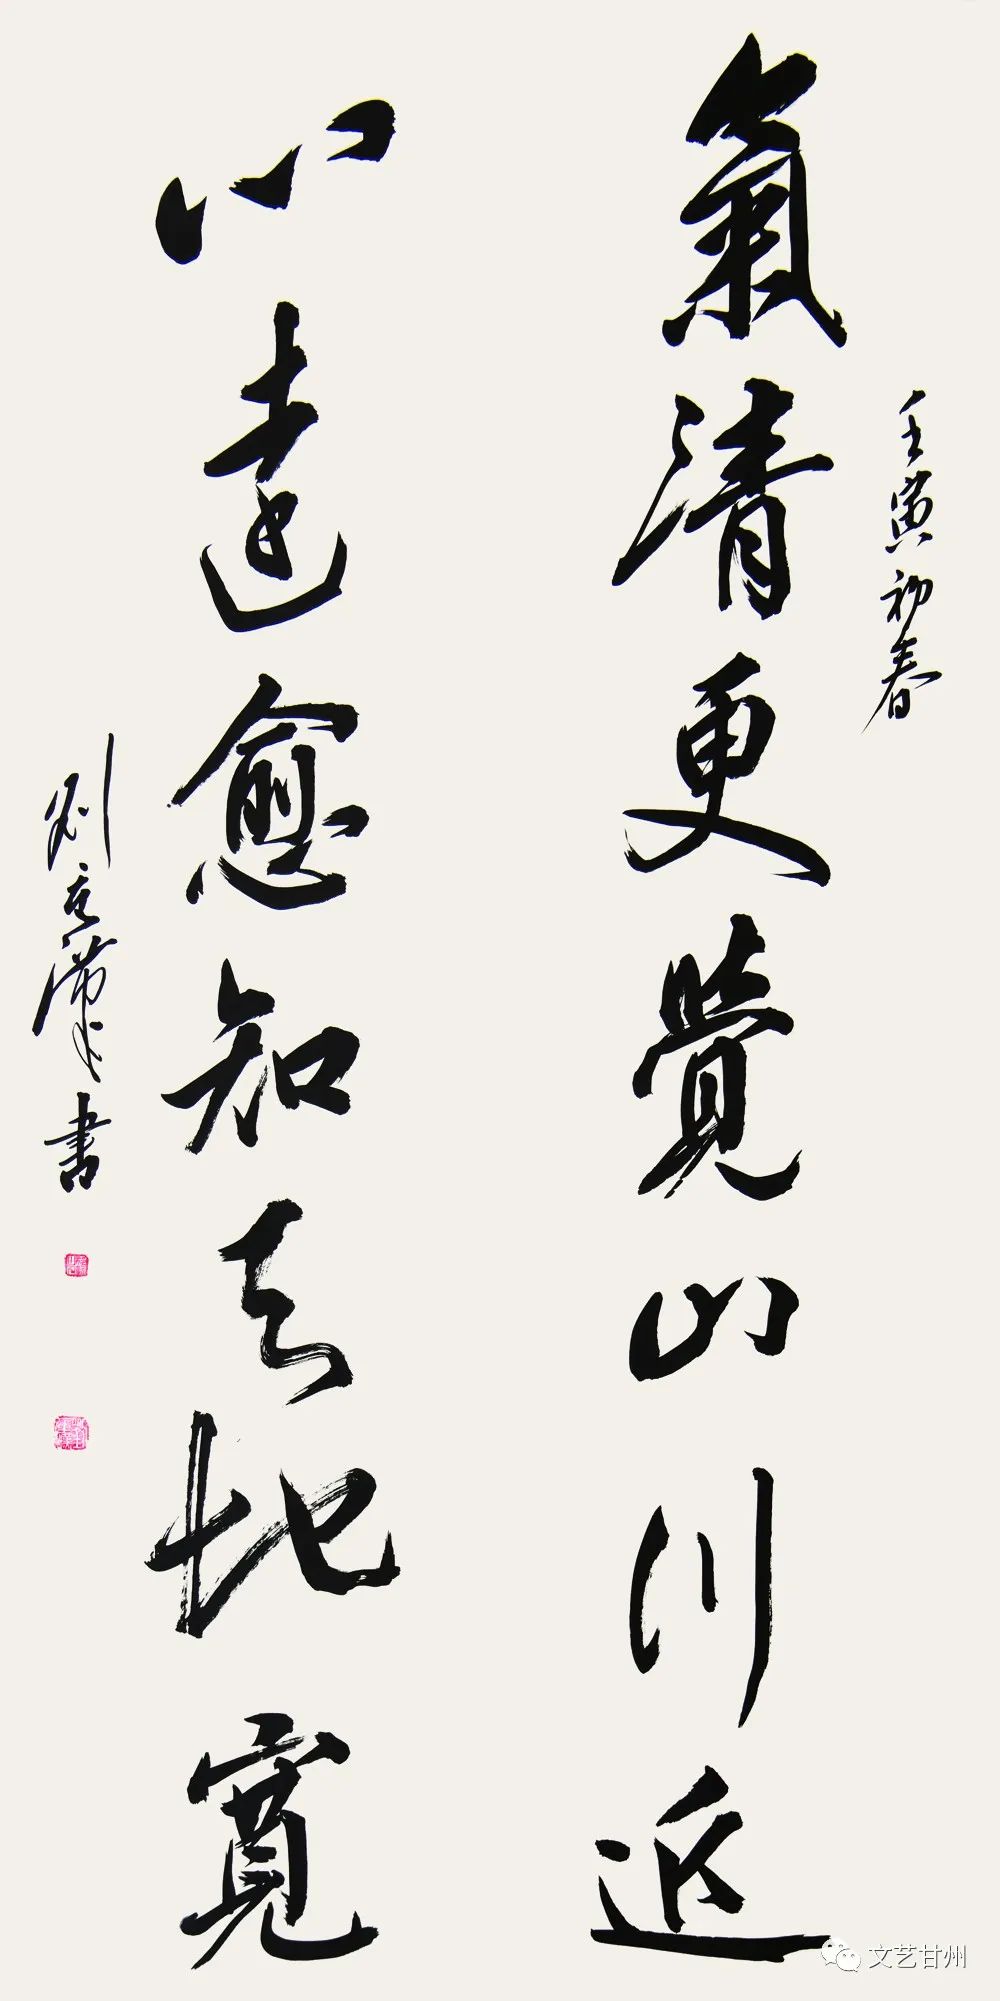 壬寅初春
氣清更覺山川近
心遠愈知天地寬
劉 書
文艺甘州